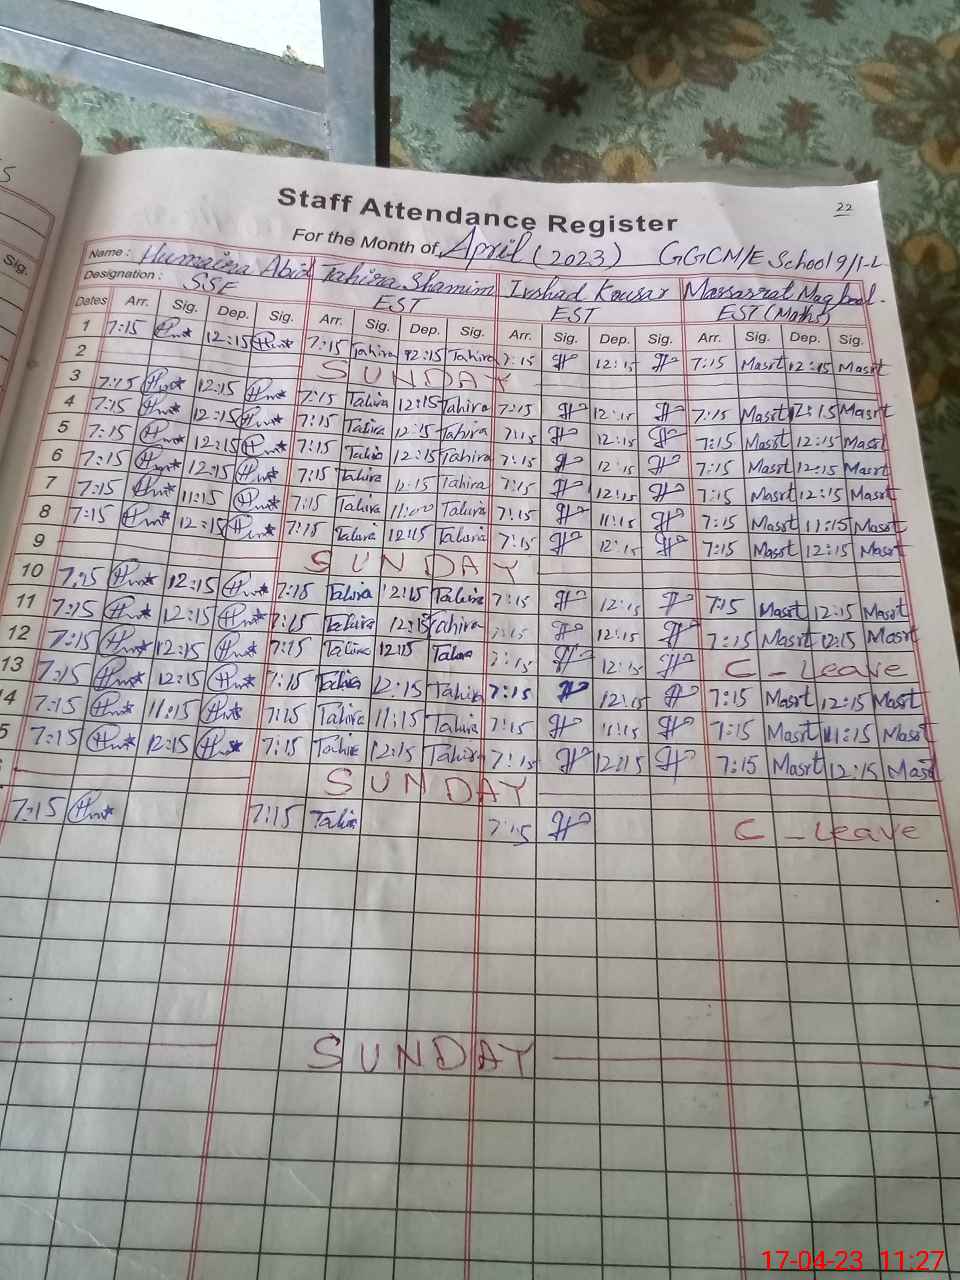 22
Staff Attendance Register
For the Month of April (2023) GGCM/E School 9/1-L
Name : Humaira Abid Tahira Shamim Irshad Kousar Massarrat Maqbool.
Designation : SSE EST EST EST (Math)
Dates Arr. Sig. Dep. Sig. Arr. Sig. Dep. Sig. Arr. Sig. Dep. Sig. Arr. Sig. Dep. Sig.
1 7:15 12:15 7:15 Tahira 12:15 Tahira 7:15 12:15 7:15 Masrt 12:15 Masrt
2 SUNDAY
3 7:15 12:15 7:15 Tahira 12:15 Tahira 7:15 12:15 7:15 Masrt 12:15 Masrt
4 7:15 12:15 7:15 Tahira 12:15 Tahira 7:15 12:15 7:15 Masrt 12:15 Masrt
5 7:15 12:15 7:15 Tahira 12:15 Tahira 7:15 12:15 7:15 Masrt 12:15 Masrt
6 7:15 12:15 7:15 Tahira 12:15 Tahira 7:15 12:15 7:15 Masrt 12:15 Masrt
7 7:15 11:15 7:15 Tahira 11:00 Tahira 7:15 11:15 7:15 Masrt 11:15 Masrt
8 7:15 12:15 7:15 Tahira 12:15 Tahira 7:15 12:15 7:15 Masrt 12:15 Masrt
9 SUNDAY
10 7:15 12:15 7:15 Tahira 12:15 Tahira 7:15 12:15 7:15 Masrt 12:15 Masrt
11 7:15 12:15 7:15 Tahira 12:15 Tahira 7:15 12:15 7:15 Masrt 12:15 Masrt
12 7:15 12:15 7:15 Tahira 12:15 Tahira 7:15 12:15 C - Leave
13 7:15 12:15 7:15 Tahira 12:15 Tahira 7:15 12:15 7:15 Masrt 12:15 Masrt
14 7:15 11:15 7:15 Tahira 11:15 Tahira 7:15 11:15 7:15 Masrt 11:15 Masrt
5 7:15 12:15 7:15 Tahira 12:15 Tahira 7:15 12:15 7:15 Masrt 12:15 Masrt
SUNDAY
7:15 7:15 Tahira 7:15 C - Leave
SUNDAY
Sig.
17-04-23 11:27